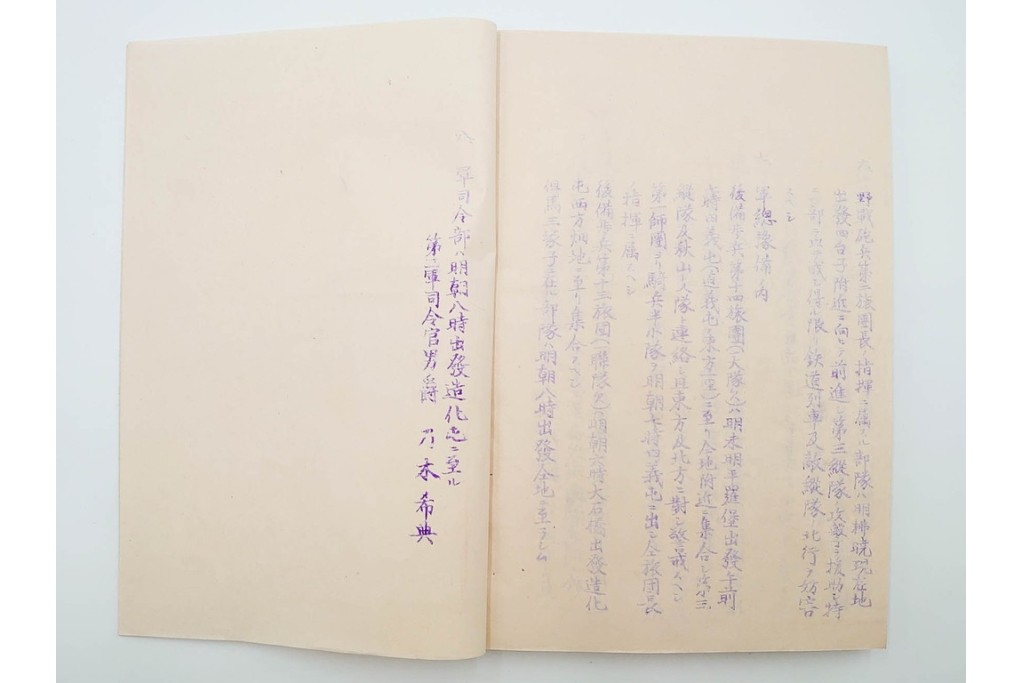 野戰砲兵第二旅團長ノ指揮ニ屬スル部隊ハ明拂曉現在地
出發四台子附近ニ向ヒテ前進シ第三縱隊ノ攻撃ヲ援助シ特
一部ヲ以テ成シ得ル限リ鉄道列車及敵縱隊ノ北行ヲ妨害
スヘシ
七
軍總豫備ノ内
後備歩兵第十四旅團(一大隊欠)ハ明未明平羅堡出發午前
時田義屯ニ至リ全地附近ニ集合シ
縱隊及秋山支隊ト連絡シ且東方及北方ニ對シ警戒スヘシ
第一師團ヨリ騎兵半小隊ヲ明朝七時田義屯ニ出シ全旅團長
ノ指揮ニ屬スヘシ
後備歩兵第十五旅團(一聯隊欠)ハ明朝六時大石橋出發造化
屯西方畑地ニ至リ集合スヘシ
但馬三家子ニ在ル部隊ハ明朝八時出發全地ニ至ラシム
八
軍司令部ハ明朝八時出發造化屯ニ至ル
第三軍司令官男爵 乃木希典